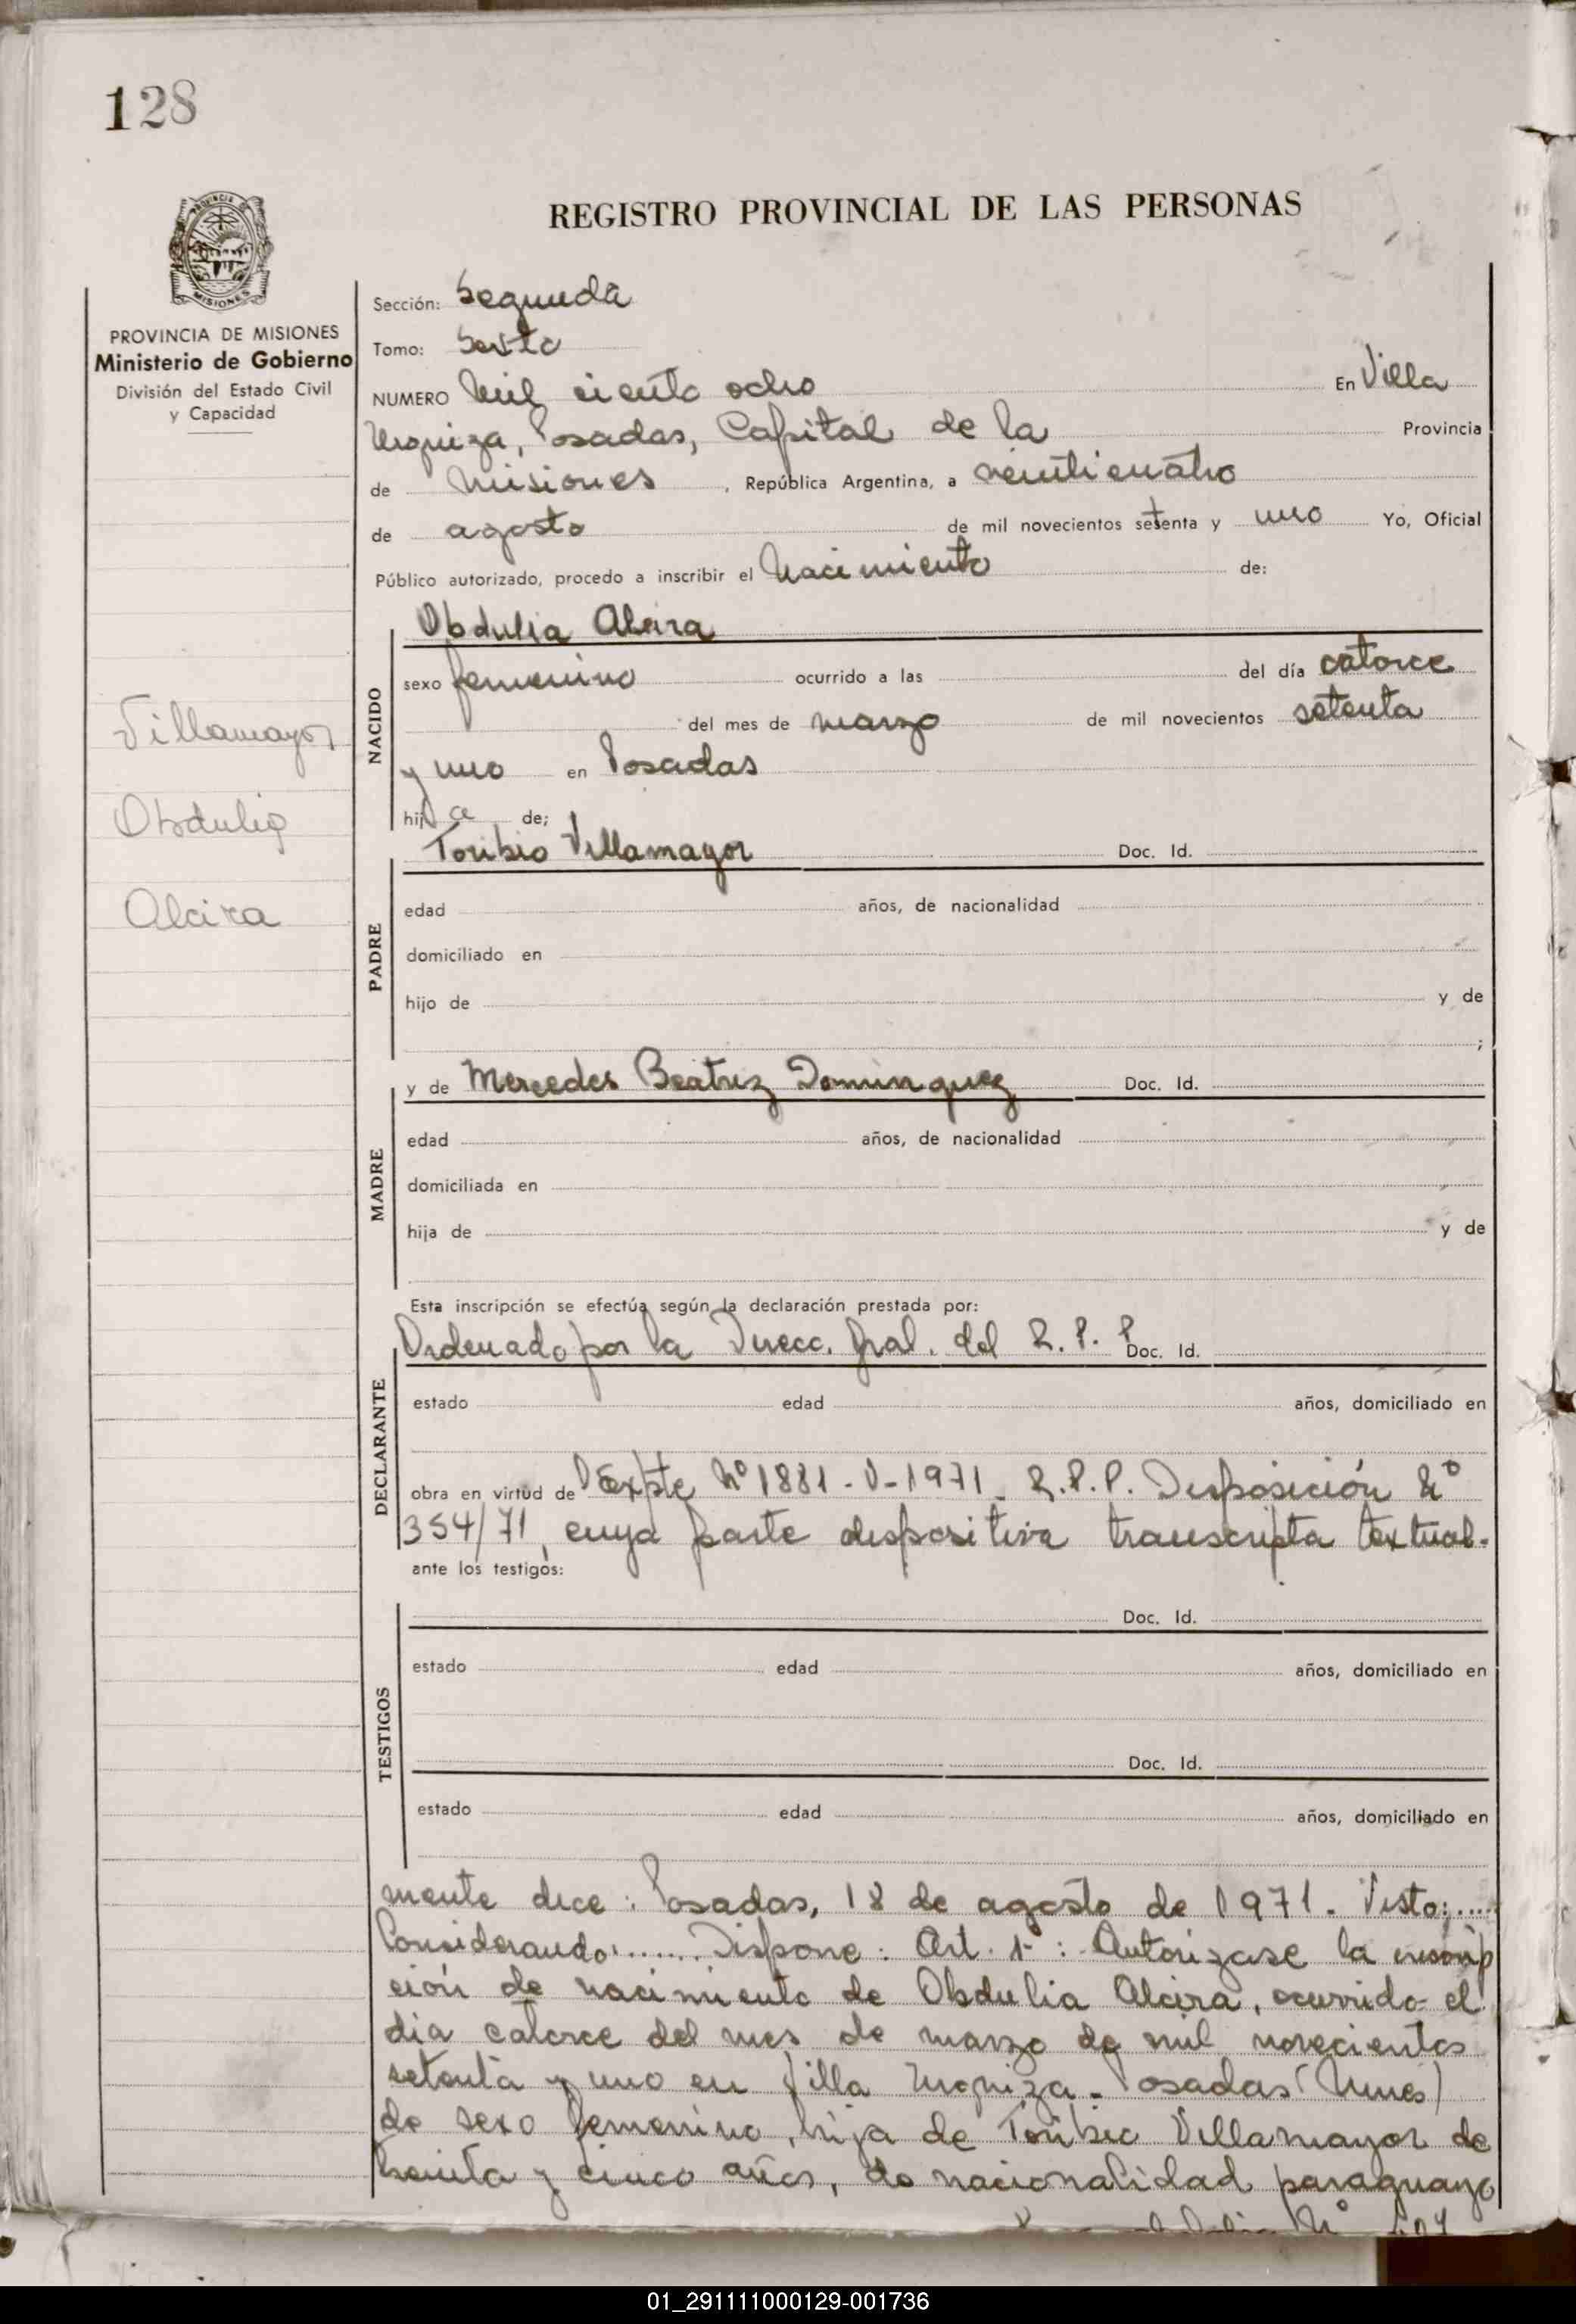 128
REGISTRO PROVINCIAL DE LAS PERSONAS
MISIONES
PROVINCIA DE MISIONES
Ministerio de Gobierno
División del Estado Civil
y Capacidad
Villamayor
Obdulia
Alcira
Sección: Segunda
Tomo: Sexto
NUMERO Mil ciento ocho En Villa
Urquiza, Posadas, Capital de la Provincia
de Misiones, República Argentina, a veinticuatro
de agosto de mil novecientos setenta y uno Yo, Oficial
Público autorizado, procedo a inscribir el Nacimiento de:
NACIDO
Obdulia Alcira
sexo femenino ocurrido a las del día catorce
del mes de marzo de mil novecientos setenta
y uno en Posadas
hija de;
PADRE
Toribio Villamayor Doc. Id.
edad años, de nacionalidad
domiciliado en
hijo de y de
;
MADRE
y de Mercedes Beatriz Dominguez Doc. Id.
edad años, de nacionalidad
domiciliada en
hija de y de
Esta inscripción se efectúa según la declaración prestada por:
DECLARANTE
Ordenado por la Direcc. Gral. del R. P. P. Doc. Id.
estado edad años, domiciliado en
obra en virtud de Expte Nº 1881-V-1971. R.P.P. Disposición Nº
354/71, cuya parte dispositiva transcripta textual-
ante los testigos:
TESTIGOS
Doc. Id.
estado edad años, domiciliado en
Doc. Id.
estado edad años, domiciliado en
mente dice: Posadas, 18 de agosto de 1971. Visto:.....
Considerando:...... Dispone: Art. 1º: Autorizase la inscrip
ción de nacimiento de Obdulia Alcira, ocurrido el
dia catorce del mes de marzo de mil novecientos
setenta y uno en Villa Urquiza - Posadas (Mnes)
de sexo femenino, hija de Toribio Villamayor de
treinta y cinco años, de nacionalidad paraguayo
01_291111000129-001736